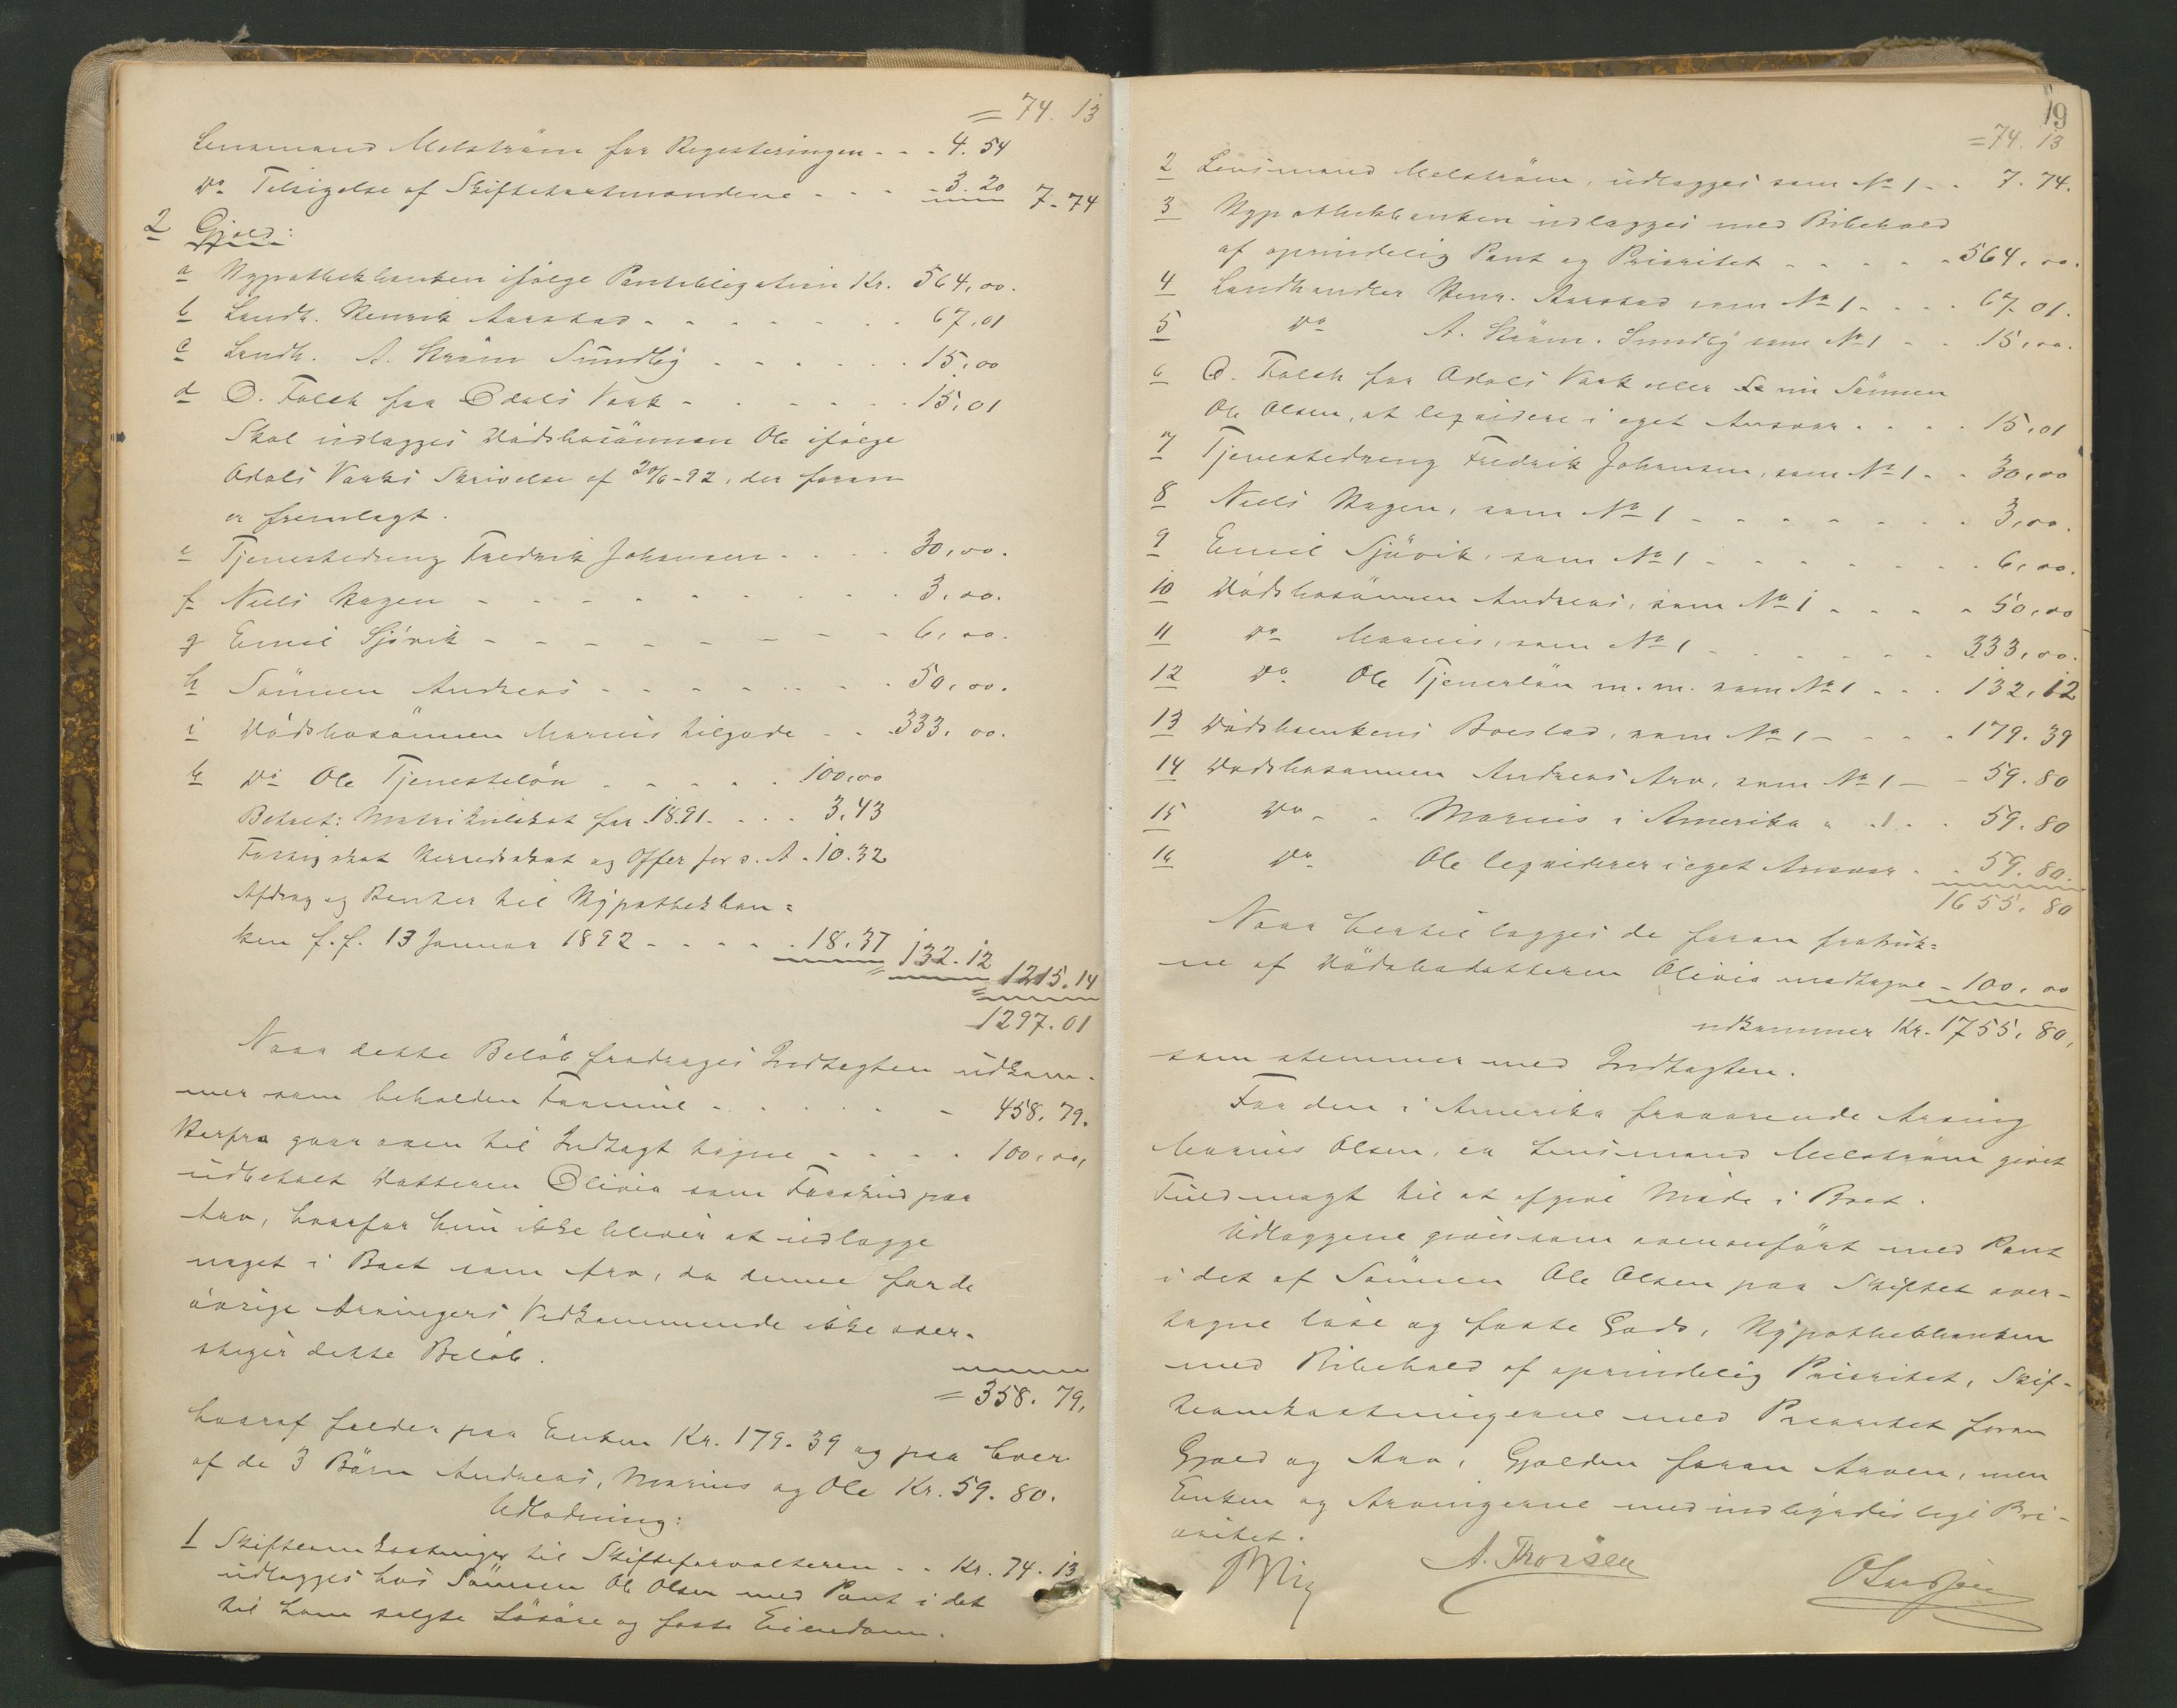 = 74. 13
Lensmand Melström for Registeringen - - - 4. 54
Do Tilsigelse af Skiftetaxtmændene - - - - 3. 20 7-74
2 Gjæld:
a Hypothekbanken ifölge Pantobligation Kr. 564,00.
b Landh. Henrik Aarstad - - - - - - - 67,01
c Landh. A. Ström Sundby - - - - - - 15,00
d O. Falch for Odals Værk - - - - - - 15,01
Skal udlægges Dödsbosönnen Ole ifölge
Odals Værks Skrivelse af 20/6-92, der foran
er fremlagt.
e Tjenestedreng Fredrik Johansen - - - - 30,00.
f Niels Hagen - - - - - - - - - 3,00.
g Emil Sjövik - - - - - - - - - 6,00.
h Sönnen Andreas - - - - - - - 50,00.
i Dödsbosönnen Marius tilgode - - - 333,00.
k Do Ole Tjenestelön - - - - - 100,00
Betalt: Matrikulskat for 1891 - - - - 3,43
Fattigskat Herredskat og Offer for s. A - 10.32
Afdrag og Renter til Hypothekban=
ken f.f. 13 Januar 1892 - - - - - 18.37 132.12 1215.14
1297.01
Naar dette Belöb fradrages Indtægten udkom-
mer som beholden Formue - - - - - - 458.79.
Herfra gaar oven til Indtægt tagne - - - - 100,00,
udbetalt Datteren Olivia som Forskud paa
Arv, hvorfor hun ikke bliver at udlægge
noget i Boet som Arv, da denne for de
övrige Arvingers Vedkommende ikke over-
stiger dette Belöb.
= 358. 79,
hvoraf falder paa Enken Kr. 179.39 og paa hver
af de 3 Börn Andreas, Marius og Ole Kr. 59. 80.
Udlodning:
1 Skifteomkostninger til Skifteforvalteren - - Kr. 74.13
udlægges hos Sönnen Ole Olsen med Pant i det
til ham solgte Lösöre og faste Eiendom.
19
= 74. 13
2 Lensmand Melström, udlægges som No 1 - - 7. 74.
3 Hypothekbanken udlægges med Bibehold
af oprindelig Pant og Prioritet - - - - - 564,00.
4 Landhandler Henr. Aarstad som No 1 - - - - 67.01.
5 Do A. Ström. Sundby som No 1 - - 15,00.
6 O. Falch for Odals Værk eller Sönnen
Ole Olsen, at leqvidere i eget Ansvar - - - - 15,01
7 Tjenestedreng Fredrik Johansen, som No 1 - - 30,00
8 Niels Hagen, som No 1 - - - - - - - 3,00.
9 Emil Sjövik, som No 1 - - - - - - - 6,00.
10 Dödsbosönnen Andreas, som No 1 - - - - 50,00
11 Do Marius, som No 1 - - - - - - 333,00.
12 Do Ole Tjenerlön m.m. som No 1 - - - 132,12
13 Dödsboenkens Boeslod, som No 1 - - - - 179.39
14 Dödsbosönnen Andreas Arv, som No 1 - - 59.80
15 Do - - Marius i Amerika " " 1 - - 59.80
16 Do Ole leqviderer i eget Ansvar - - 59.80.
1655.80
Naar hertil lægges de foran fratruk=
ne af Dödsbodatteren Olivia modtagne - 100,00
udkommer Kr. 1755,80,
som stemmer med Indtægten.
For den i Amerika fraværende Arving
Marius Olsen, er Lensmand Melström givet
Fuldmagt til at afgive Möde i Boet.
Udlæggene gives som ovenanfört med Pant
i det af Sönnen Ole Olsen paa Skiftet over-
tagne löse og faste Gods, Hypothekbanken
med Bibehold af oprindelig Prioritet, Skif-
teomkostningerne med Prioritet foran
Gjæld og Arv, Gjælden foran Arven, men
Enken og Arvingerne med indbyrdes lige Pri-
oritet.
A. Thorsen